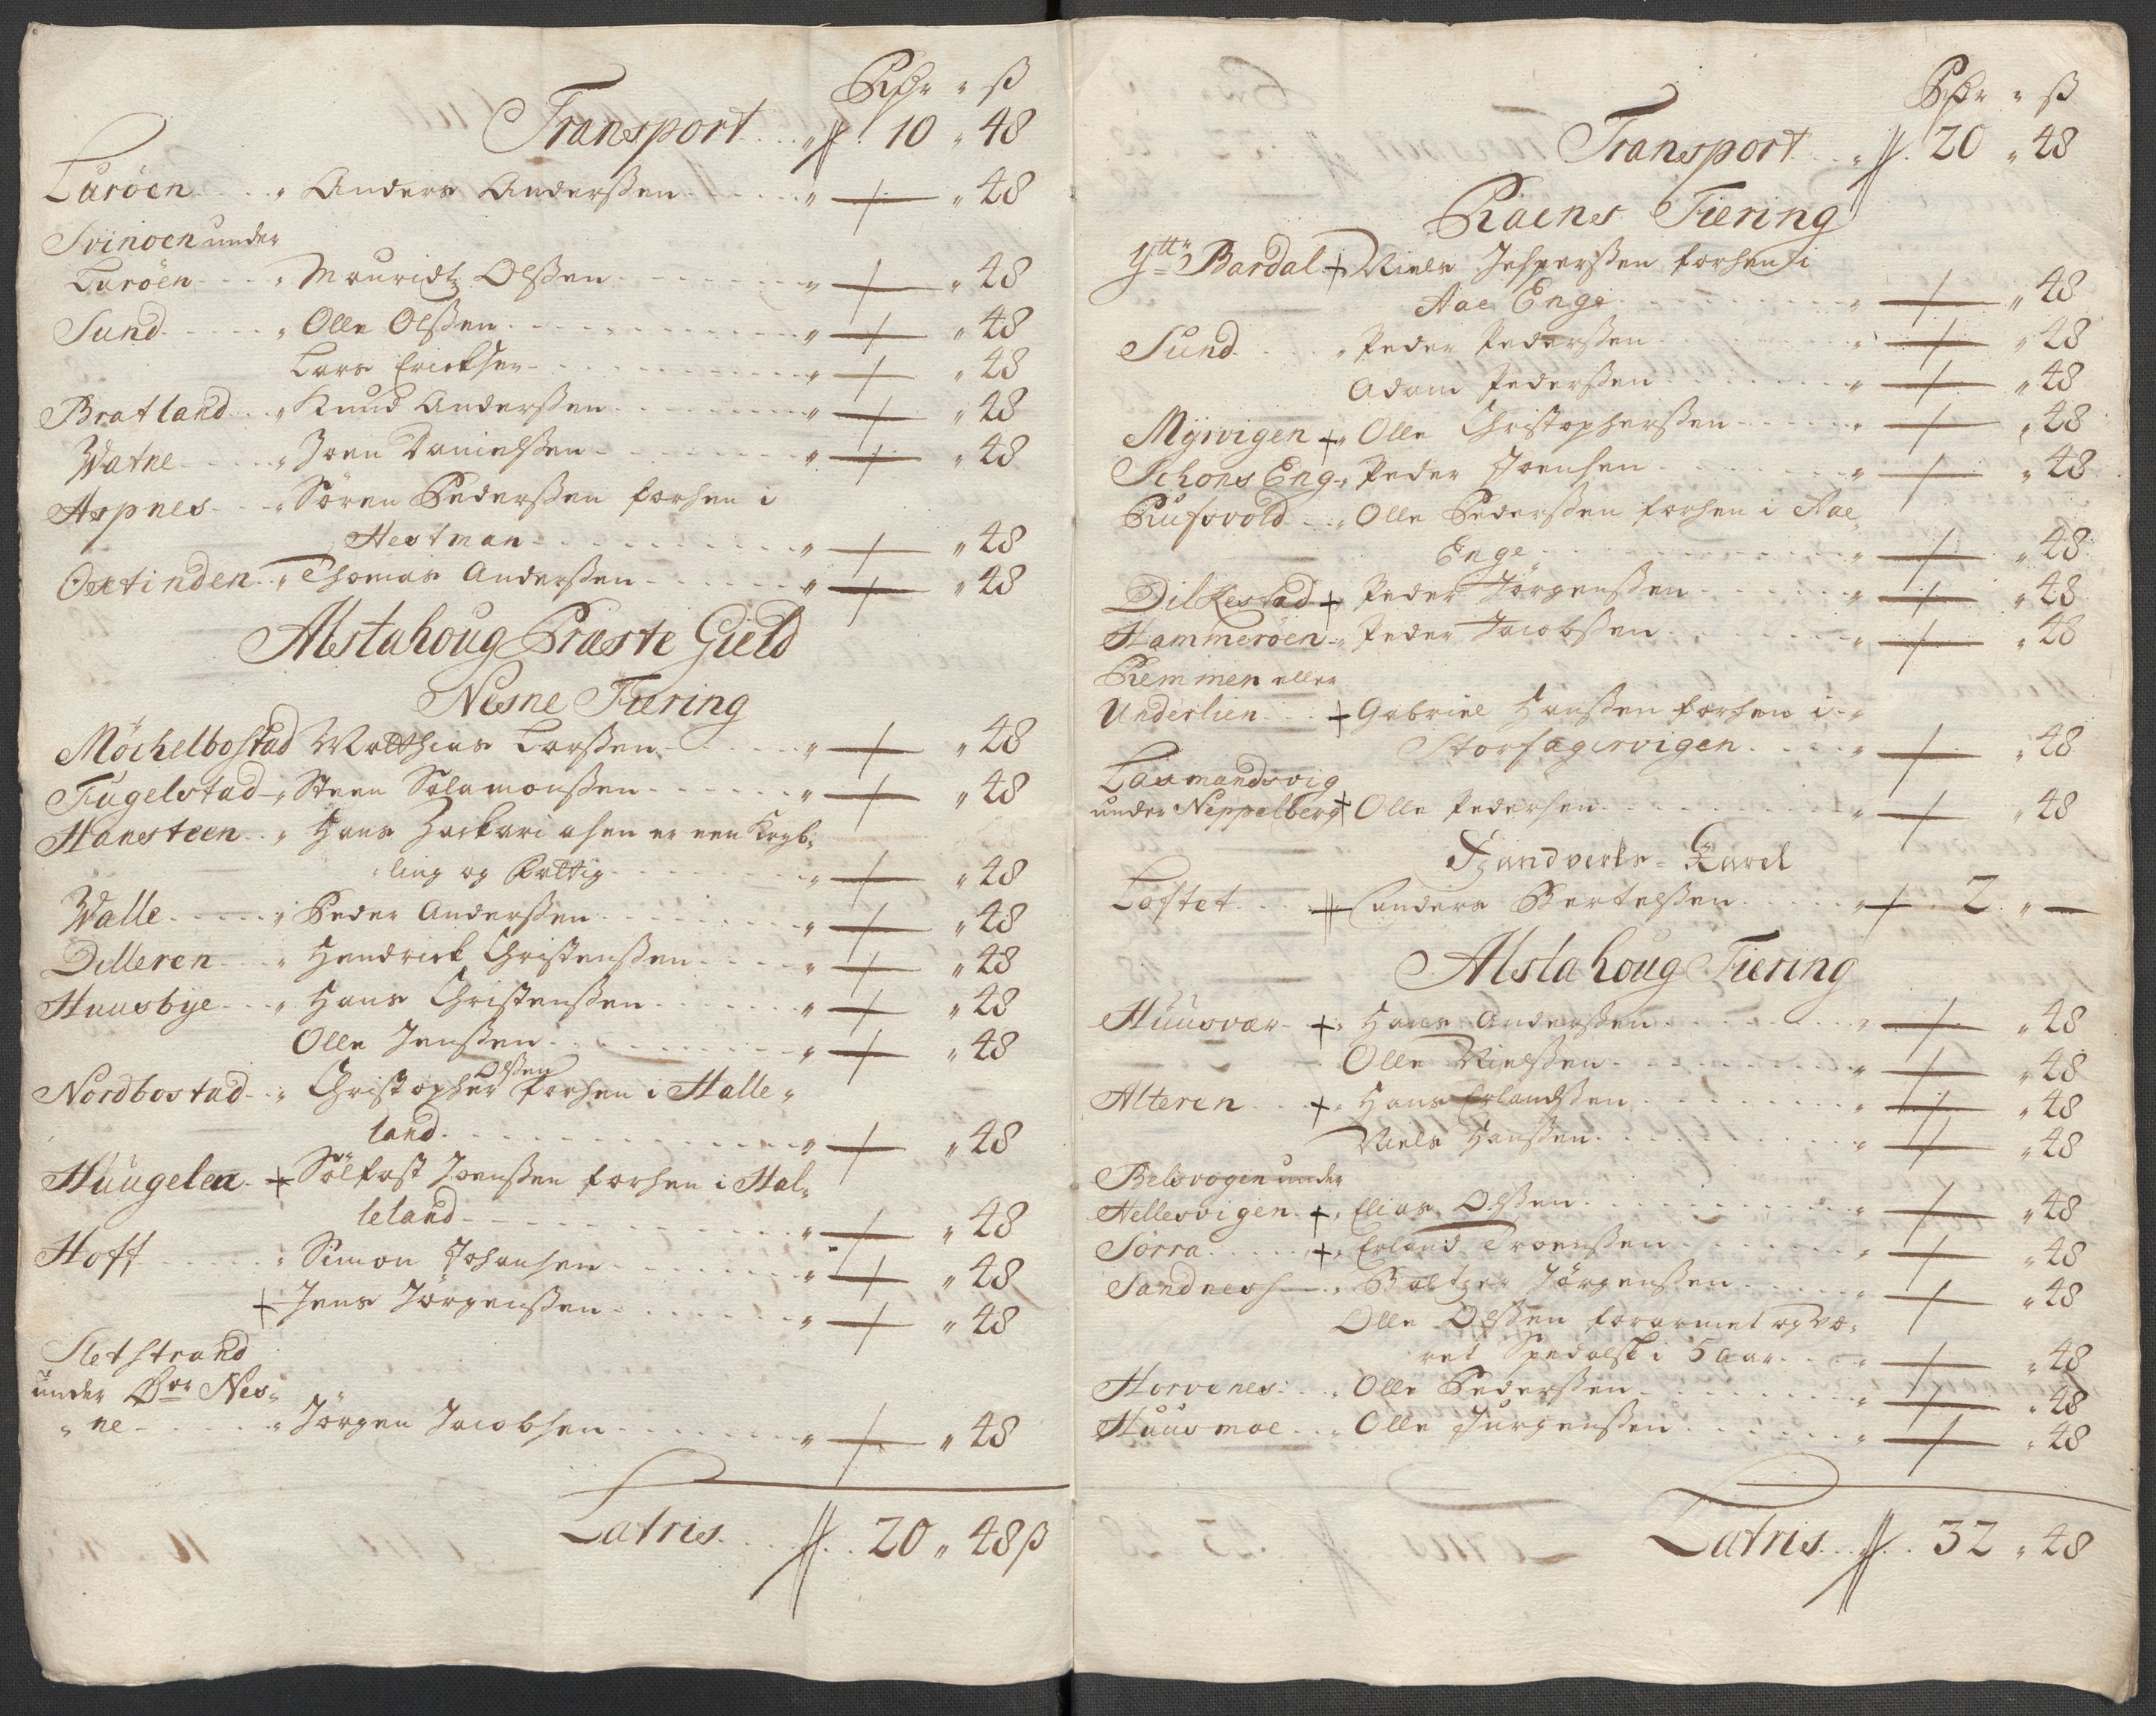 Rdr " ß
Transport . . " 10 " 48
Luröen . . . " Anders Anderßen . . . " " 48
Svinöen under
Luröen . . . " Mouridtz Olßen . . . " " 48
Sund . . . " Olle Olßen . . . " " 48
Lars Ericksen . . . " " 48
Bratland . . . " Knud Anderßen . . . " " 48
Watne . . . " Joen Danielßen . . . " " 48
Aspnes . . . " Sören Pederßen forhen i
Hestman . . . " " 48
Oxtinden . . " Thomas Anderßen . . . " " 48
Alstahoug Præste Gield
Nesne Fiering
Möchelbostad Matthias Larßen . . . " " 48
Fugelstad " Steen Salamonßen . . . " " 48
Hansteen . . " Hans Zackariasen er een Kryb-
ling og Fattig . . . " " 48
Walle . . . " Peder Anderßen . . . " " 48
Dilleren . . . " Hendrick Christenßen . . . " " 48
Huusbye . . . " Hans Christenßen . . . " " 48
Olle Jenßen . . . " " 48
Olßen
Nordbostad . . " Christopher forhen i Halle-
land . . . " " 48
Huugelen + Sölfast Joenßen forhen i Hal-
leland . . . " " 48
Hoff . . . " Simon Johansen . . . " " 48
+ Jens Jörgenßen . . . " " 48
Sletstrand
under Nes-
" ne . . . " Jörgen Jacobsen . . . " " 48
Latris . . . 20 " 48 ß
Rdr " ß
Transport . . . " 20 " 48
Raens Fiering
Ytt Bardal + Niels Jesperßen forhen i
Aae Enge . . . " " 48
Sund . . . " Peder Pederßen . . . " " 48
Adam Pederßen . . . " " 48
Myrvigen + " Olle Christopherßen . . . " " 48
Schons Eng " Peder Joensen . . . " " 48
Rufsvold . . . " Olle Pederßen forhen i Aae-
Enge . . . " " 48
Dilkestad + Peder Jörgenßen . . . " " 48
Hammeröen " Peder Jacobßen . . . " " 48
Remmen eller
Underlien . . . + Gabriel Hanßen forhen i "
Storfagervigen . . . " " 48
Laxmandsvig
under Neppelberg + Olle Pedersen . . . " " 48
Handverks-Karl
Loftet . . . Anders Bertelßen . . . " 2 " —
Alstahoug Fiering
Huusvær + " Hans Anderßen . . . " " 48
Olle Nielßen . . . " " 48
Alteren . . . + " Hans Erlandßen . . . " " 48
Niels Hanßen . . . " " 48
Belsvogen under
Hellesvigen + " Elias Olßen . . . " " 48
Sörra . . . + " Erland Troenßen . . . " " 48
Sandnes " Baltzer Jörgenßen . . . " " 48
Olle Olßen forarmet og væ-
ret Spedalsk i 5 aar . . . " " 48
Horvenes . . " Olle Pederßen . . . " " 48
Huusmoe . . " Olle Jurgenßen . . . " " 48
Latris . . . 32 " 48